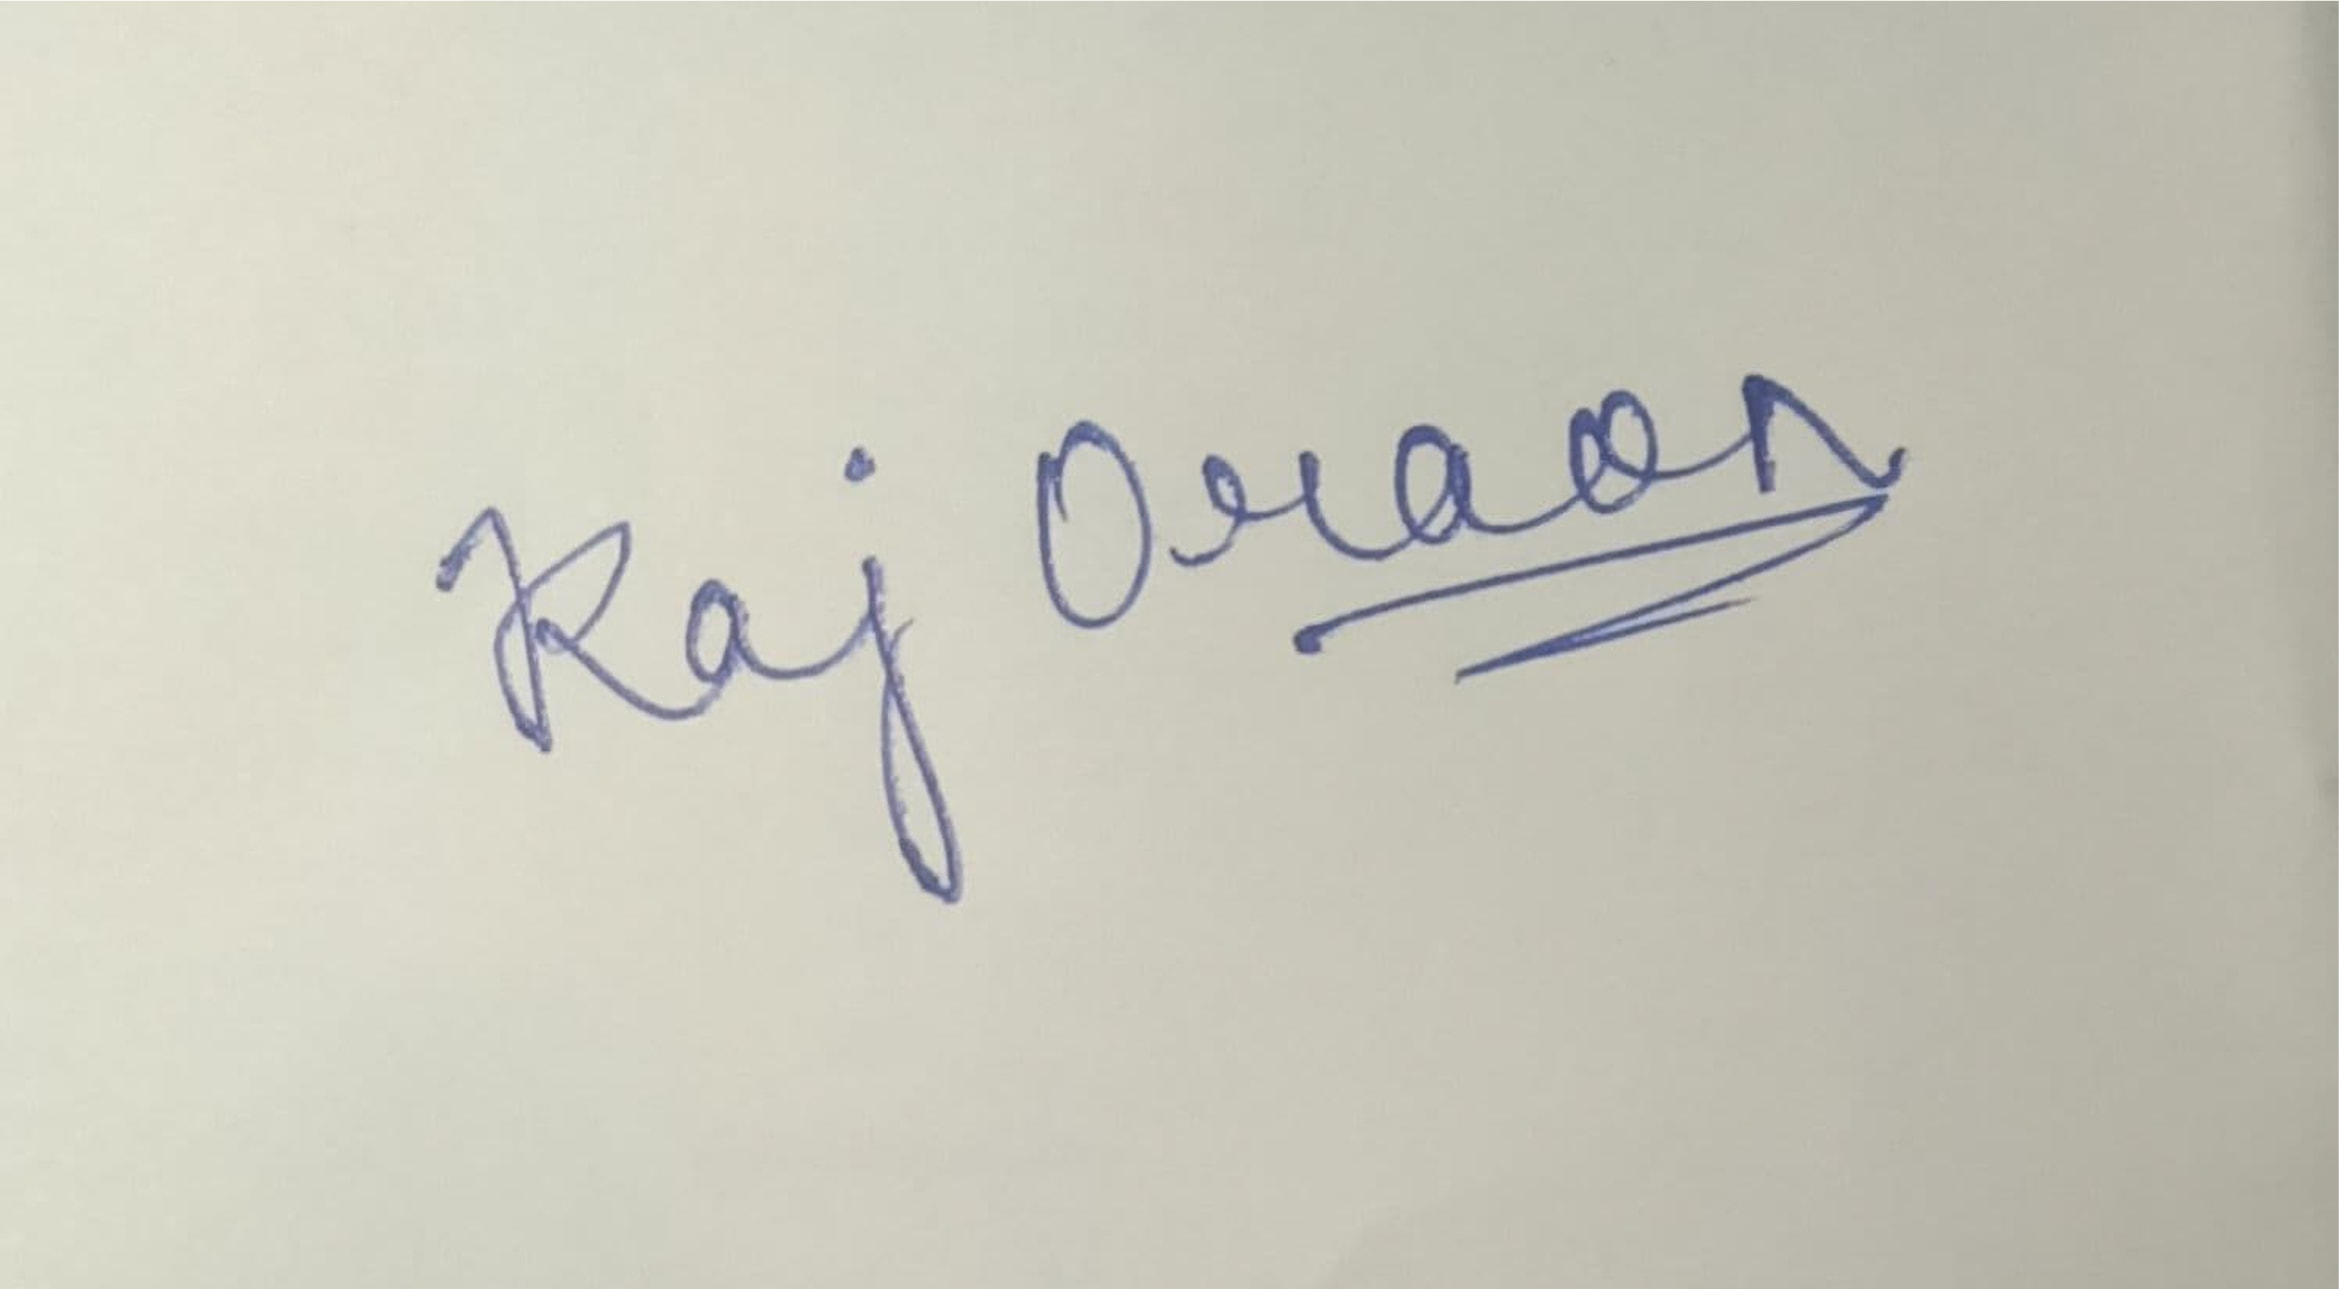 Raj Oraon